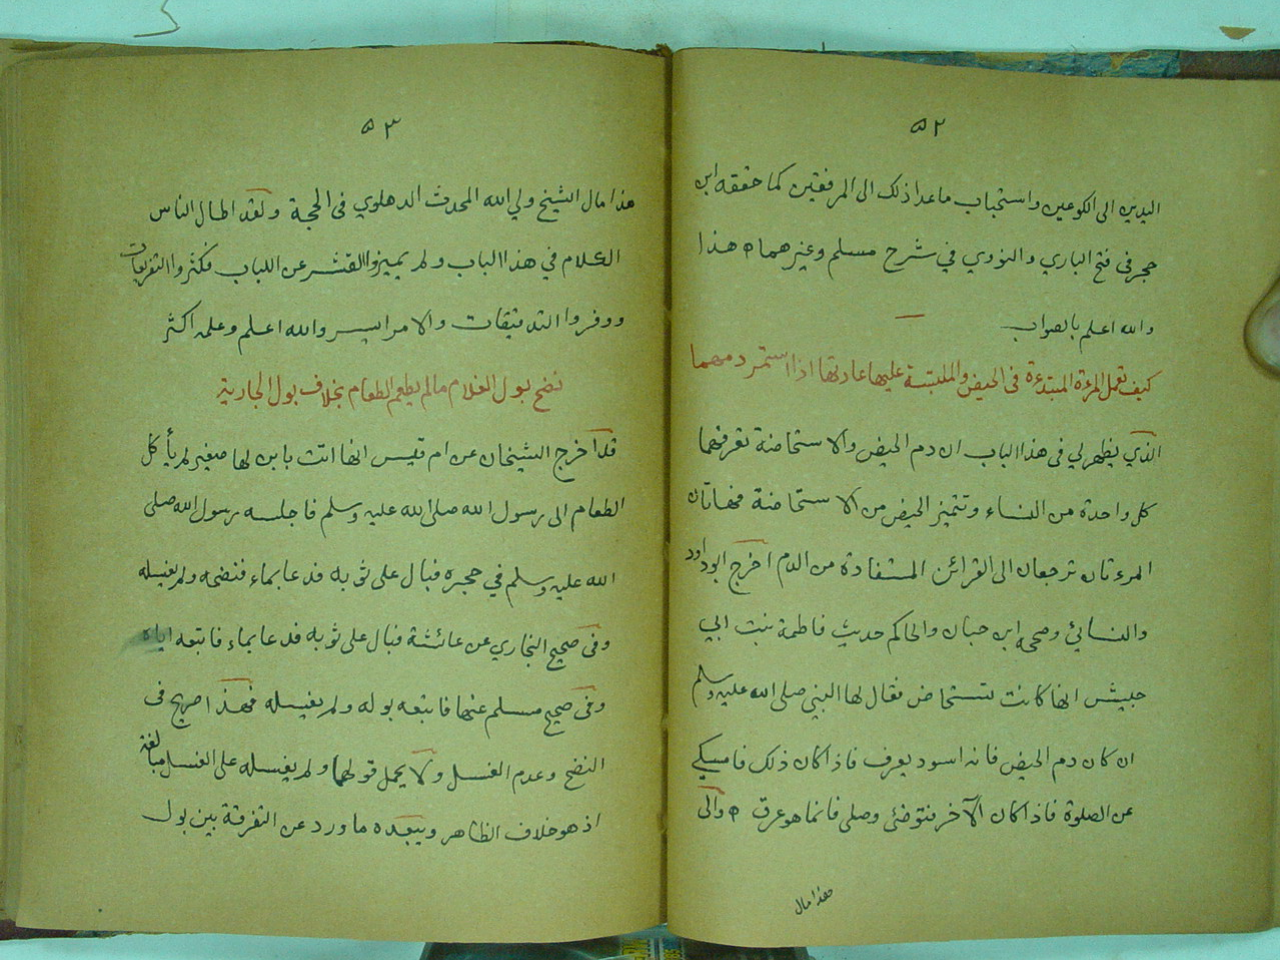 ٥٢
اليدين الى الكوعين واستحباب ماعدا ذلك الى المرفقين كما حققه ابن
حجر فى فتح الباري والنووي في شرح مسلم وغيرهما ه هذا
والله اعلم بالصواب
كيف تعمل المرءة المبتدءة فى الحيض والملتبسة عليها عادتها اذا استمر دمهما
الذي يظهر لي فى هذا الباب ان دم الحيض والاستحاضة تعرفهما
كل واحدة من النساء وتتميز الحيض من الاستحاضة فهاتان
المرءتان ترجعان الى القرائن المستفادة من الدم اخرج ابوداود
والنسائي وصححه ابن حبان والحاكم حديث فاطمة بنت ابي
حبيش انها كانت تستحاض فقال لها النبي صلى الله عليه وسلم
ان كان دم الحيض فانه اسود يعرف فاذا كان ذلك فامسكي
عن الصلوة فاذا كان الآخر فتوضئى وصلى فانما هو عرق ه والى
هذا مال
٥٣
هذا مال الشيخ ولي الله المحدث الدهلوي فى الحجة ولقد اطال الناس
الكلام في هذا الباب ولم يميزوا القشر عن اللباب فكثروا التفريعات
ووفروا التدقيقات والامر ايسر والله اعلم وعلمه اكثر
نضح بول الغلام مالم يطعم الطعام بخلاف بول الجارية
قد اخرج الشيخان عن ام قيس انها اتت بابن لها صغير لم يأكل
الطعام الى رسول الله صلى الله عليه وسلم فاجلسه رسول الله صلى
الله عليه وسلم في حجره فبال على ثوبه فدعا بماء فنضحه ولم يغسله
وفى صحيح البخاري عن عائشة فبال على ثوبه فدعا بماء فاتبعه اياه
وفى صحيح مسلم عنها فاتبعه بوله ولم يغسله فهذا صريح فى
النضح وعدم الغسل ولا يحمل قولها ولم يغسله على الغسل مبالغة
اذ هو خلاف الظاهر ويبعده ما ورد عن التفرقة بين بول